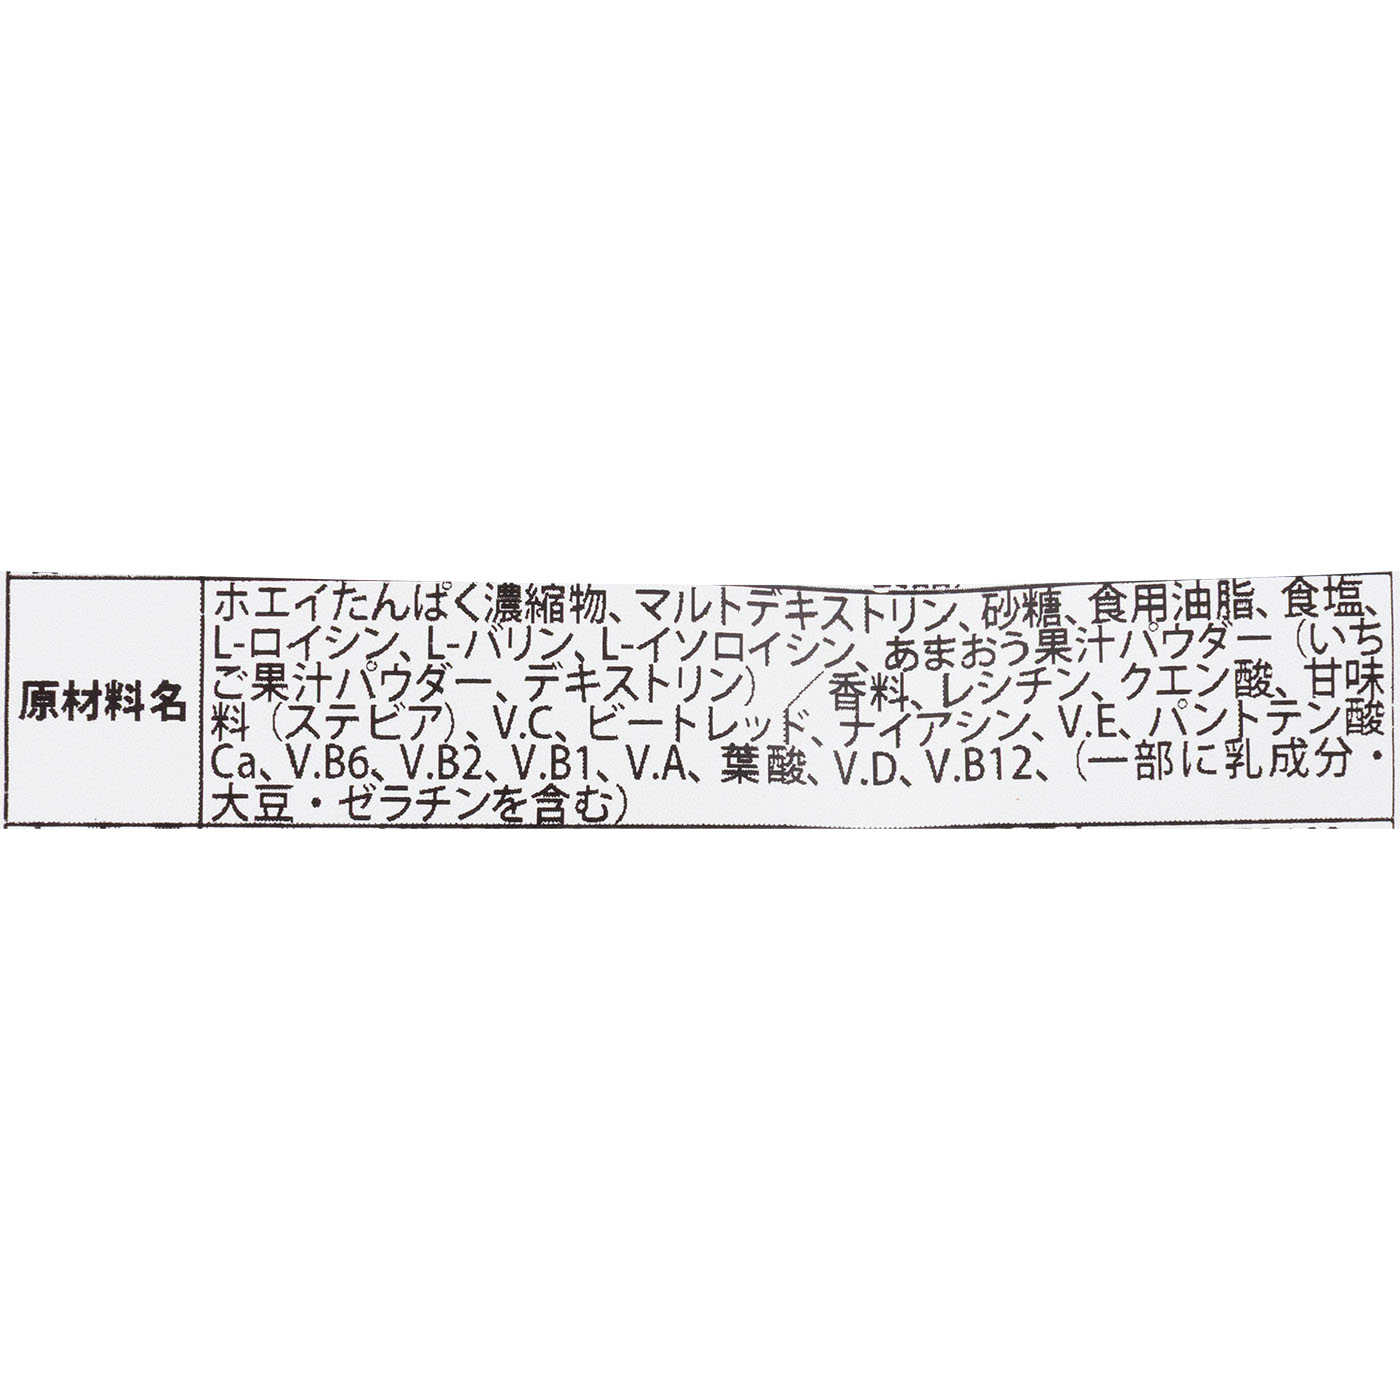 原材料名
ホエイたんぱく濃縮物、マルトデキストリン、砂糖、食用油脂、食塩、
L-ロイシン、L-バリン、L-イソロイシン、あまおう果汁パウダー（いち
ご果汁パウダー、デキストリン）／香料、レシチン、クエン酸、甘味
料（ステビア）、V.C、ビートレッド、ナイアシン、V.E、パントテン酸
Ca、V.B6、V.B2、V.B1、V.A、葉酸、V.D、V.B12、（一部に乳成分・
大豆・ゼラチンを含む）